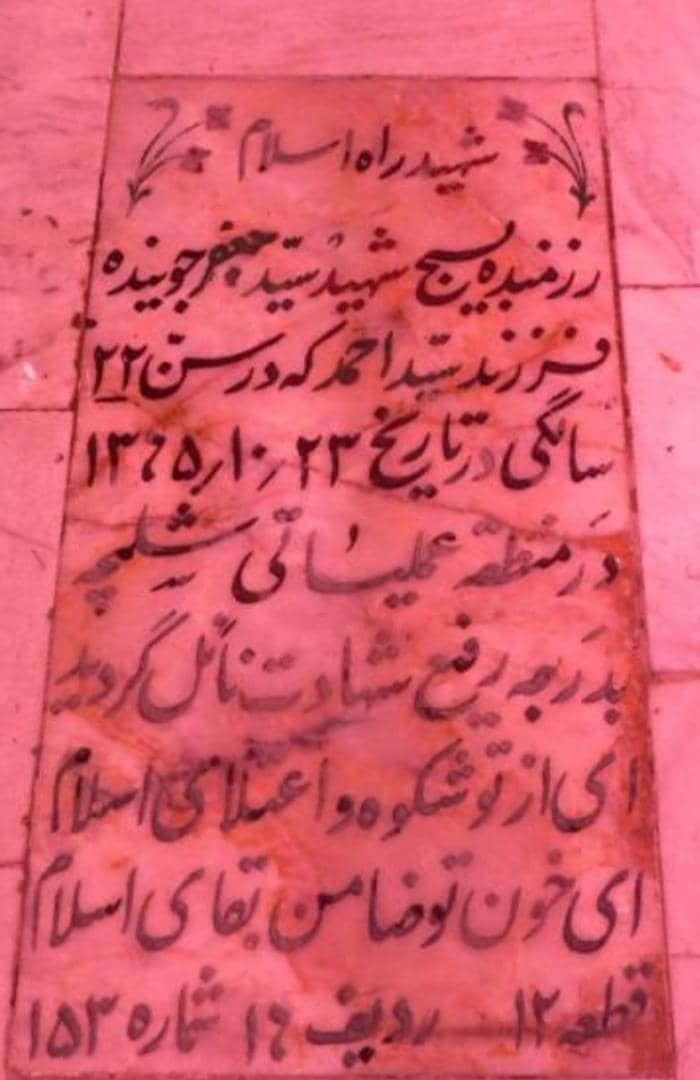 شهید راه اسلام
رزمنده بسیج شهید سیّد جعفر جوینده
فرزند سیّد احمد که در سنّ ۲۲
سالگی در تاریخ ۲۳ ر۱۰ر۱۳۶۵
در منطقه عملیاتی شلمچه
بدرجه رفیع شهادت نائل گردید
ای از تو شکوه و اعتلای اسلام
ای خون تو ضامن بقای اسلام
قطعه ۱۲ ردیف ۱۶ شماره ۱۵۳